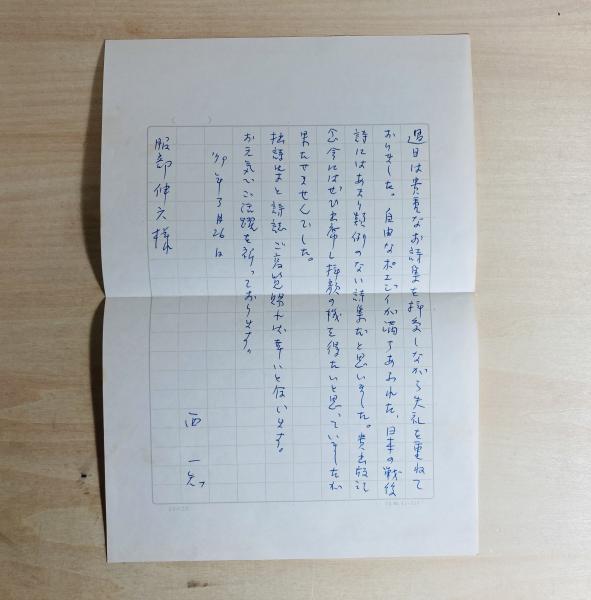 過日は貴重なお詩集を拝受しながら失礼を重ねて
おりました。自由なポエジイが満ちあふれた、日本の戦後
詩にはあまり類例のない詩集だと思いました。貴出版記
念会にはぜひ出席し拝顔の機を得たいと思っていましたが
果たせませんでした。
拙詩集と詩誌ご高覧賜れば幸いと存じます。
お元気でご活躍を祈っております。
'79年3月26日
西 一知
服部伸六様